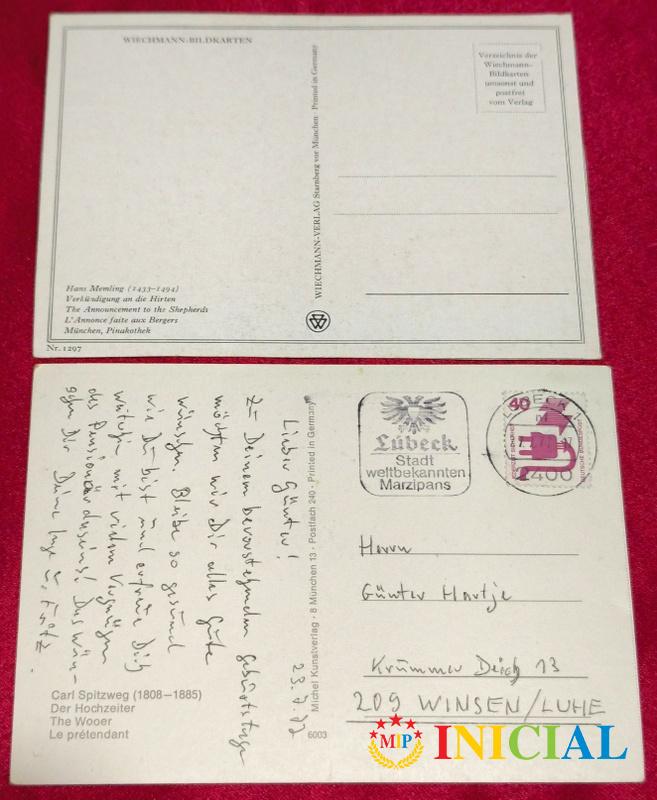 WIECHMANN-BILDKARTEN
Verzeichnis der
Wiechmann-
Bildkarten
umsonst und
postfrei
vom Verlag
WIECHMANN-VERLAG Starnberg vor München · Printed in Germany
Hans Memling (1433–1494)
Verkündigung an die Hirten
The Announcement to the Shepherds
L'Annonce faite aux Bergers
München, Pinakothek
Nr. 1297
Lieber Günter!
Zu Deinem bevorstehenden Geburtstage
möchten wir Dir alles Gute
wünschen. Bleibe so gesund
wie Du bist und erfreue Dich
weiterhin mit vielem Vergnügen
des Pensionärdaseins! Das wün-
schen Dir Deine Inge u. Fritz.
Carl Spitzweg (1808–1885)
Der Hochzeiter
The Wooer
Le prétendant
Michel Kunstverlag · 8 München 13 · Postfach 240 · Printed in Germany
6003
Lübeck
Stadt
weltbekannten
Marzipans
40
DEUTSCHE BUNDESPOST
2400
Herrn
Günter Hartje
Krummer Deich 13
209 WINSEN/LUHE
MIP INICIAL